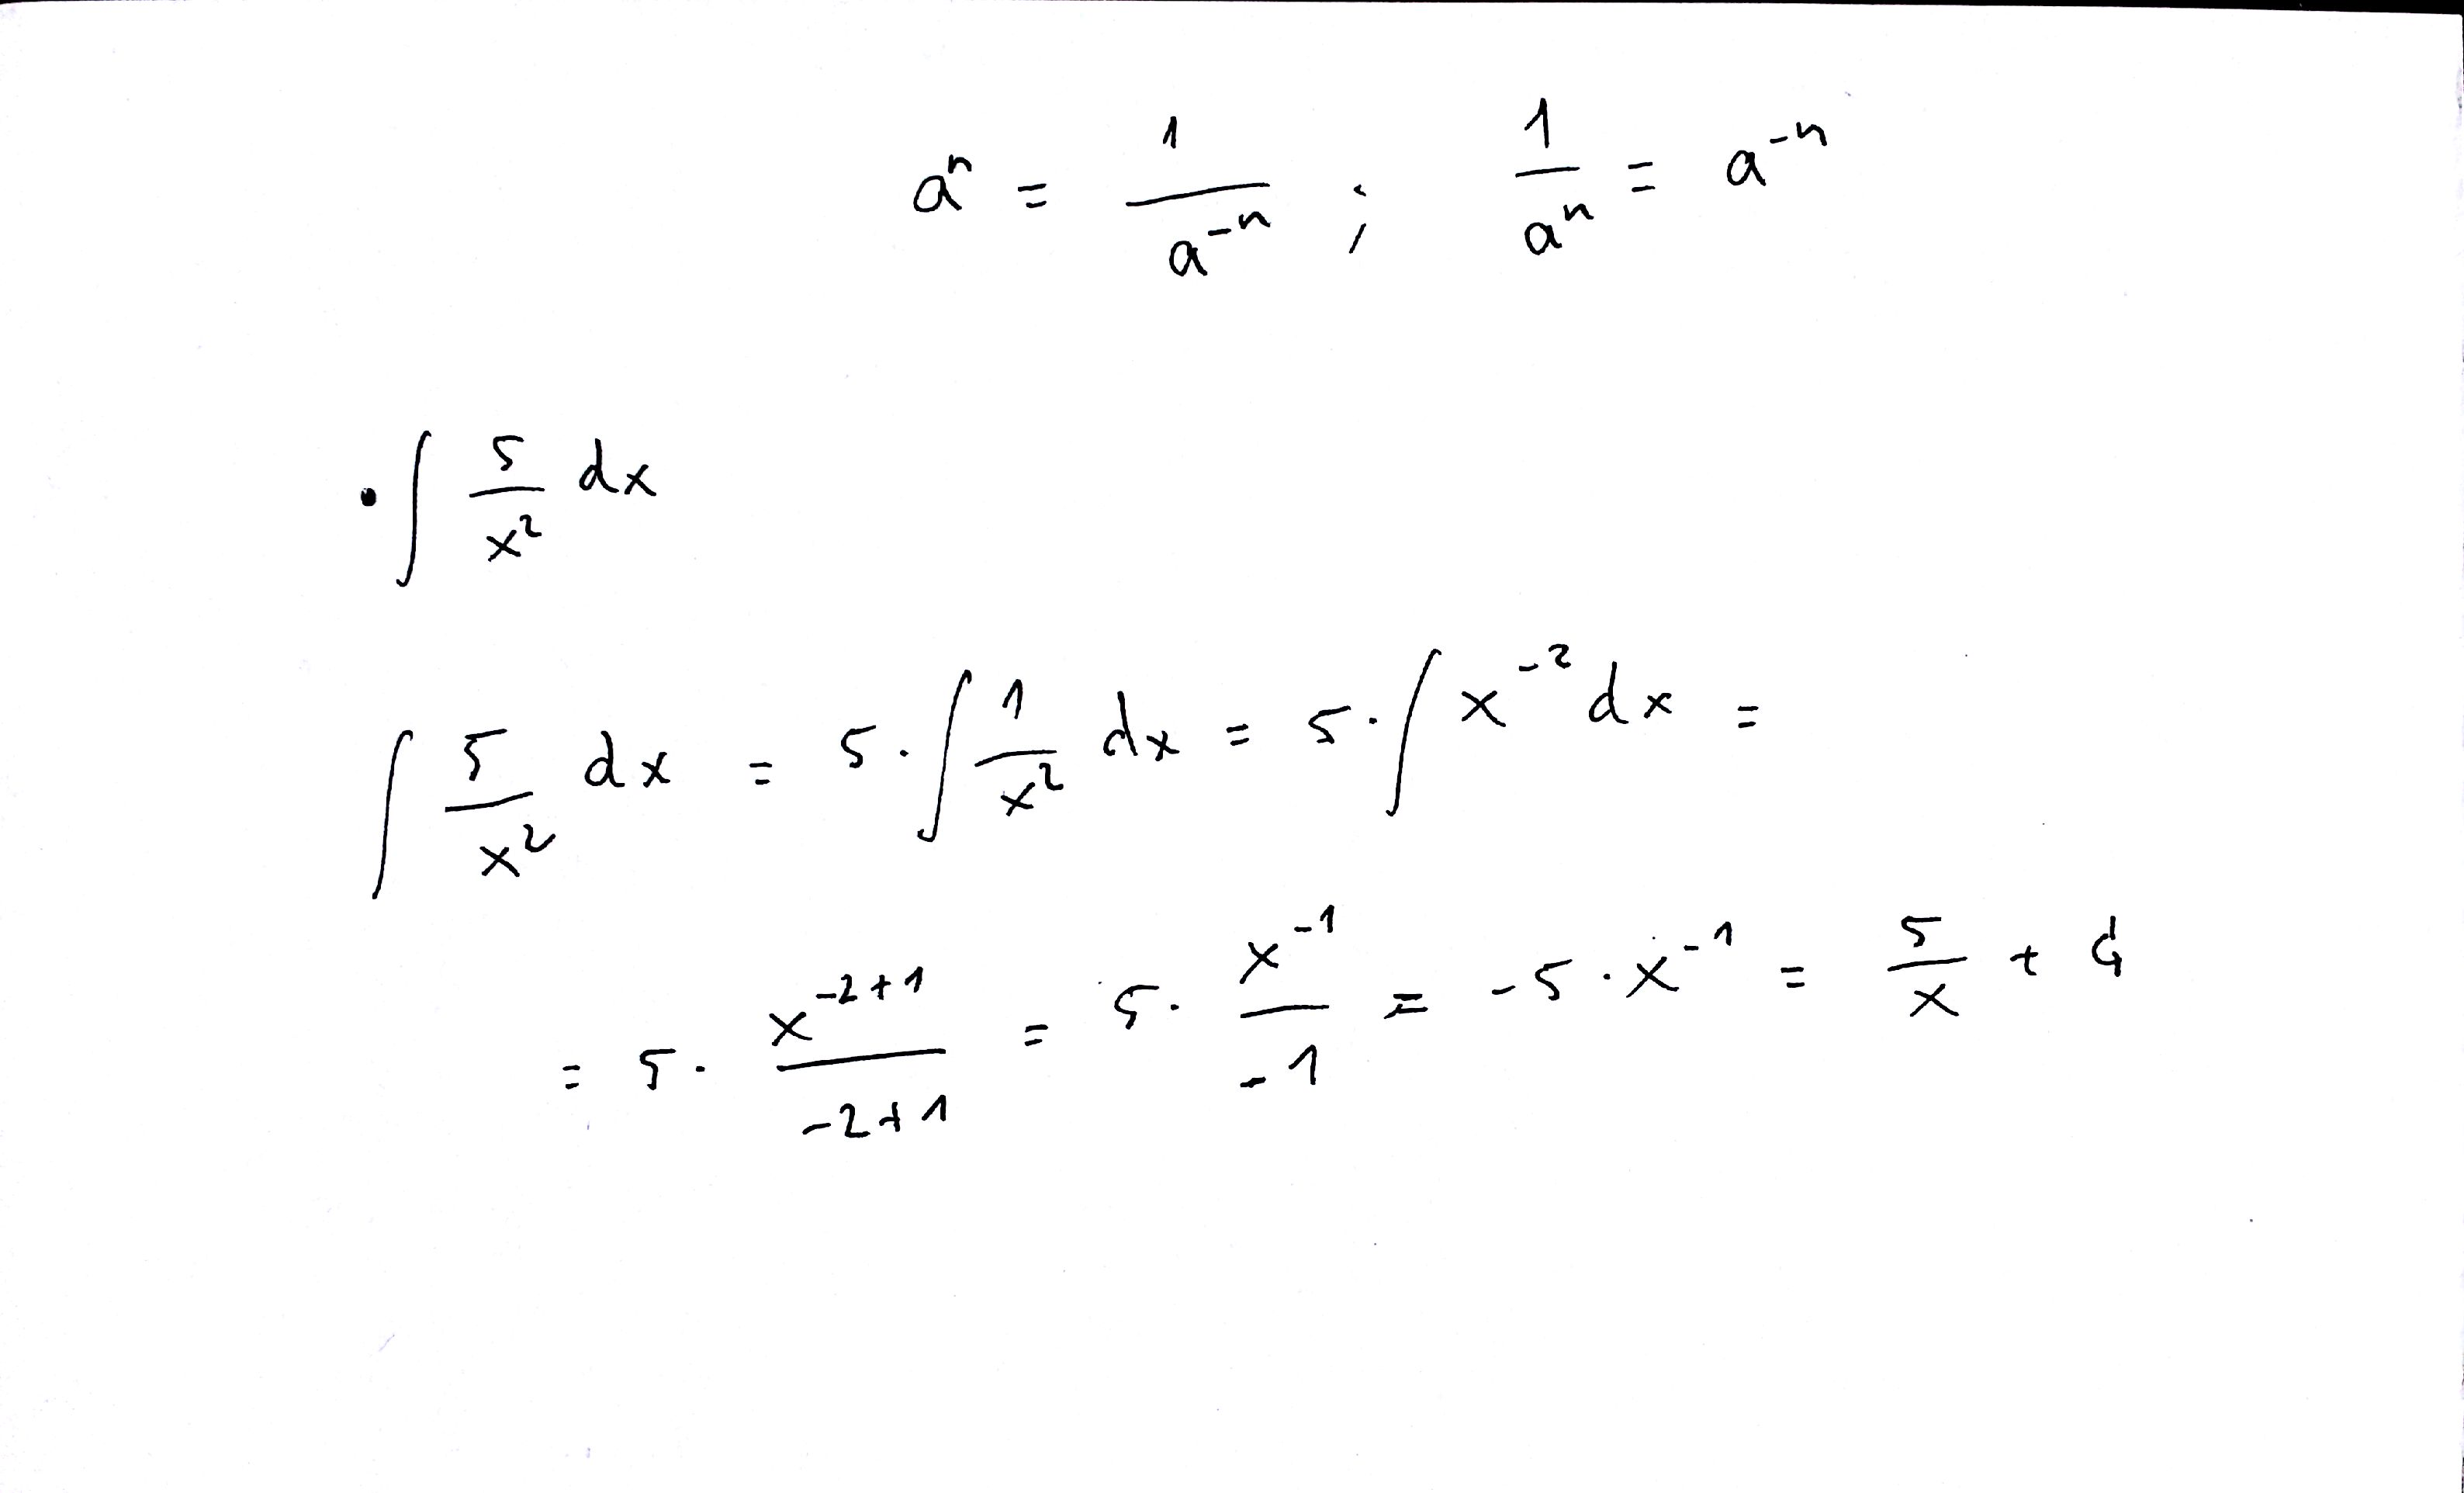 aⁿ = 1/a⁻ⁿ ; 1/aⁿ = a⁻ⁿ
• ∫ 5/x² dx
∫ 5/x² dx = 5 · ∫ 1/x² dx = 5 · ∫ x⁻² dx =
= 5 · x⁻²⁺¹/(-2+1) = 5 · x⁻¹/-1 = -5 · x⁻¹ = 5/x + C